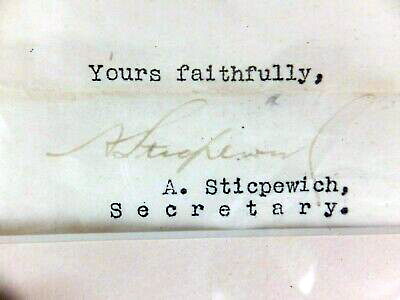 Yours faithfully,
A Sticpewich
A. Sticpewich,
Secretary.